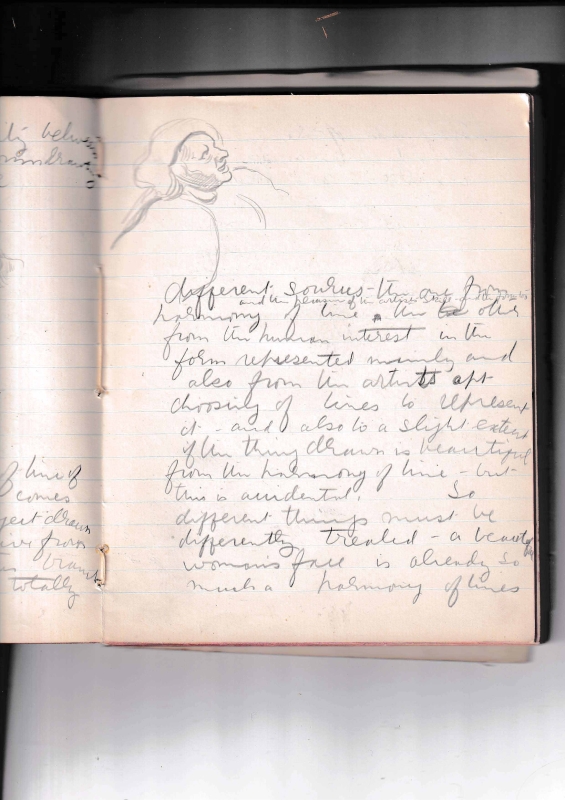 ty between
of line of
comes
ject drawn
ive from
branch
totally
different sources - the one from
and the pleasure of the artist's
harmony of line, the other
from the human interest in the
form represented mainly and
also from the artists apt
choosing of lines to represent
it - and also to a slight extent
if the thing drawn is beautiful
from the harmony of line - but
this is accidental. So
different things must be
differently treated - a beautiful
woman's face is already so
much a harmony of lines